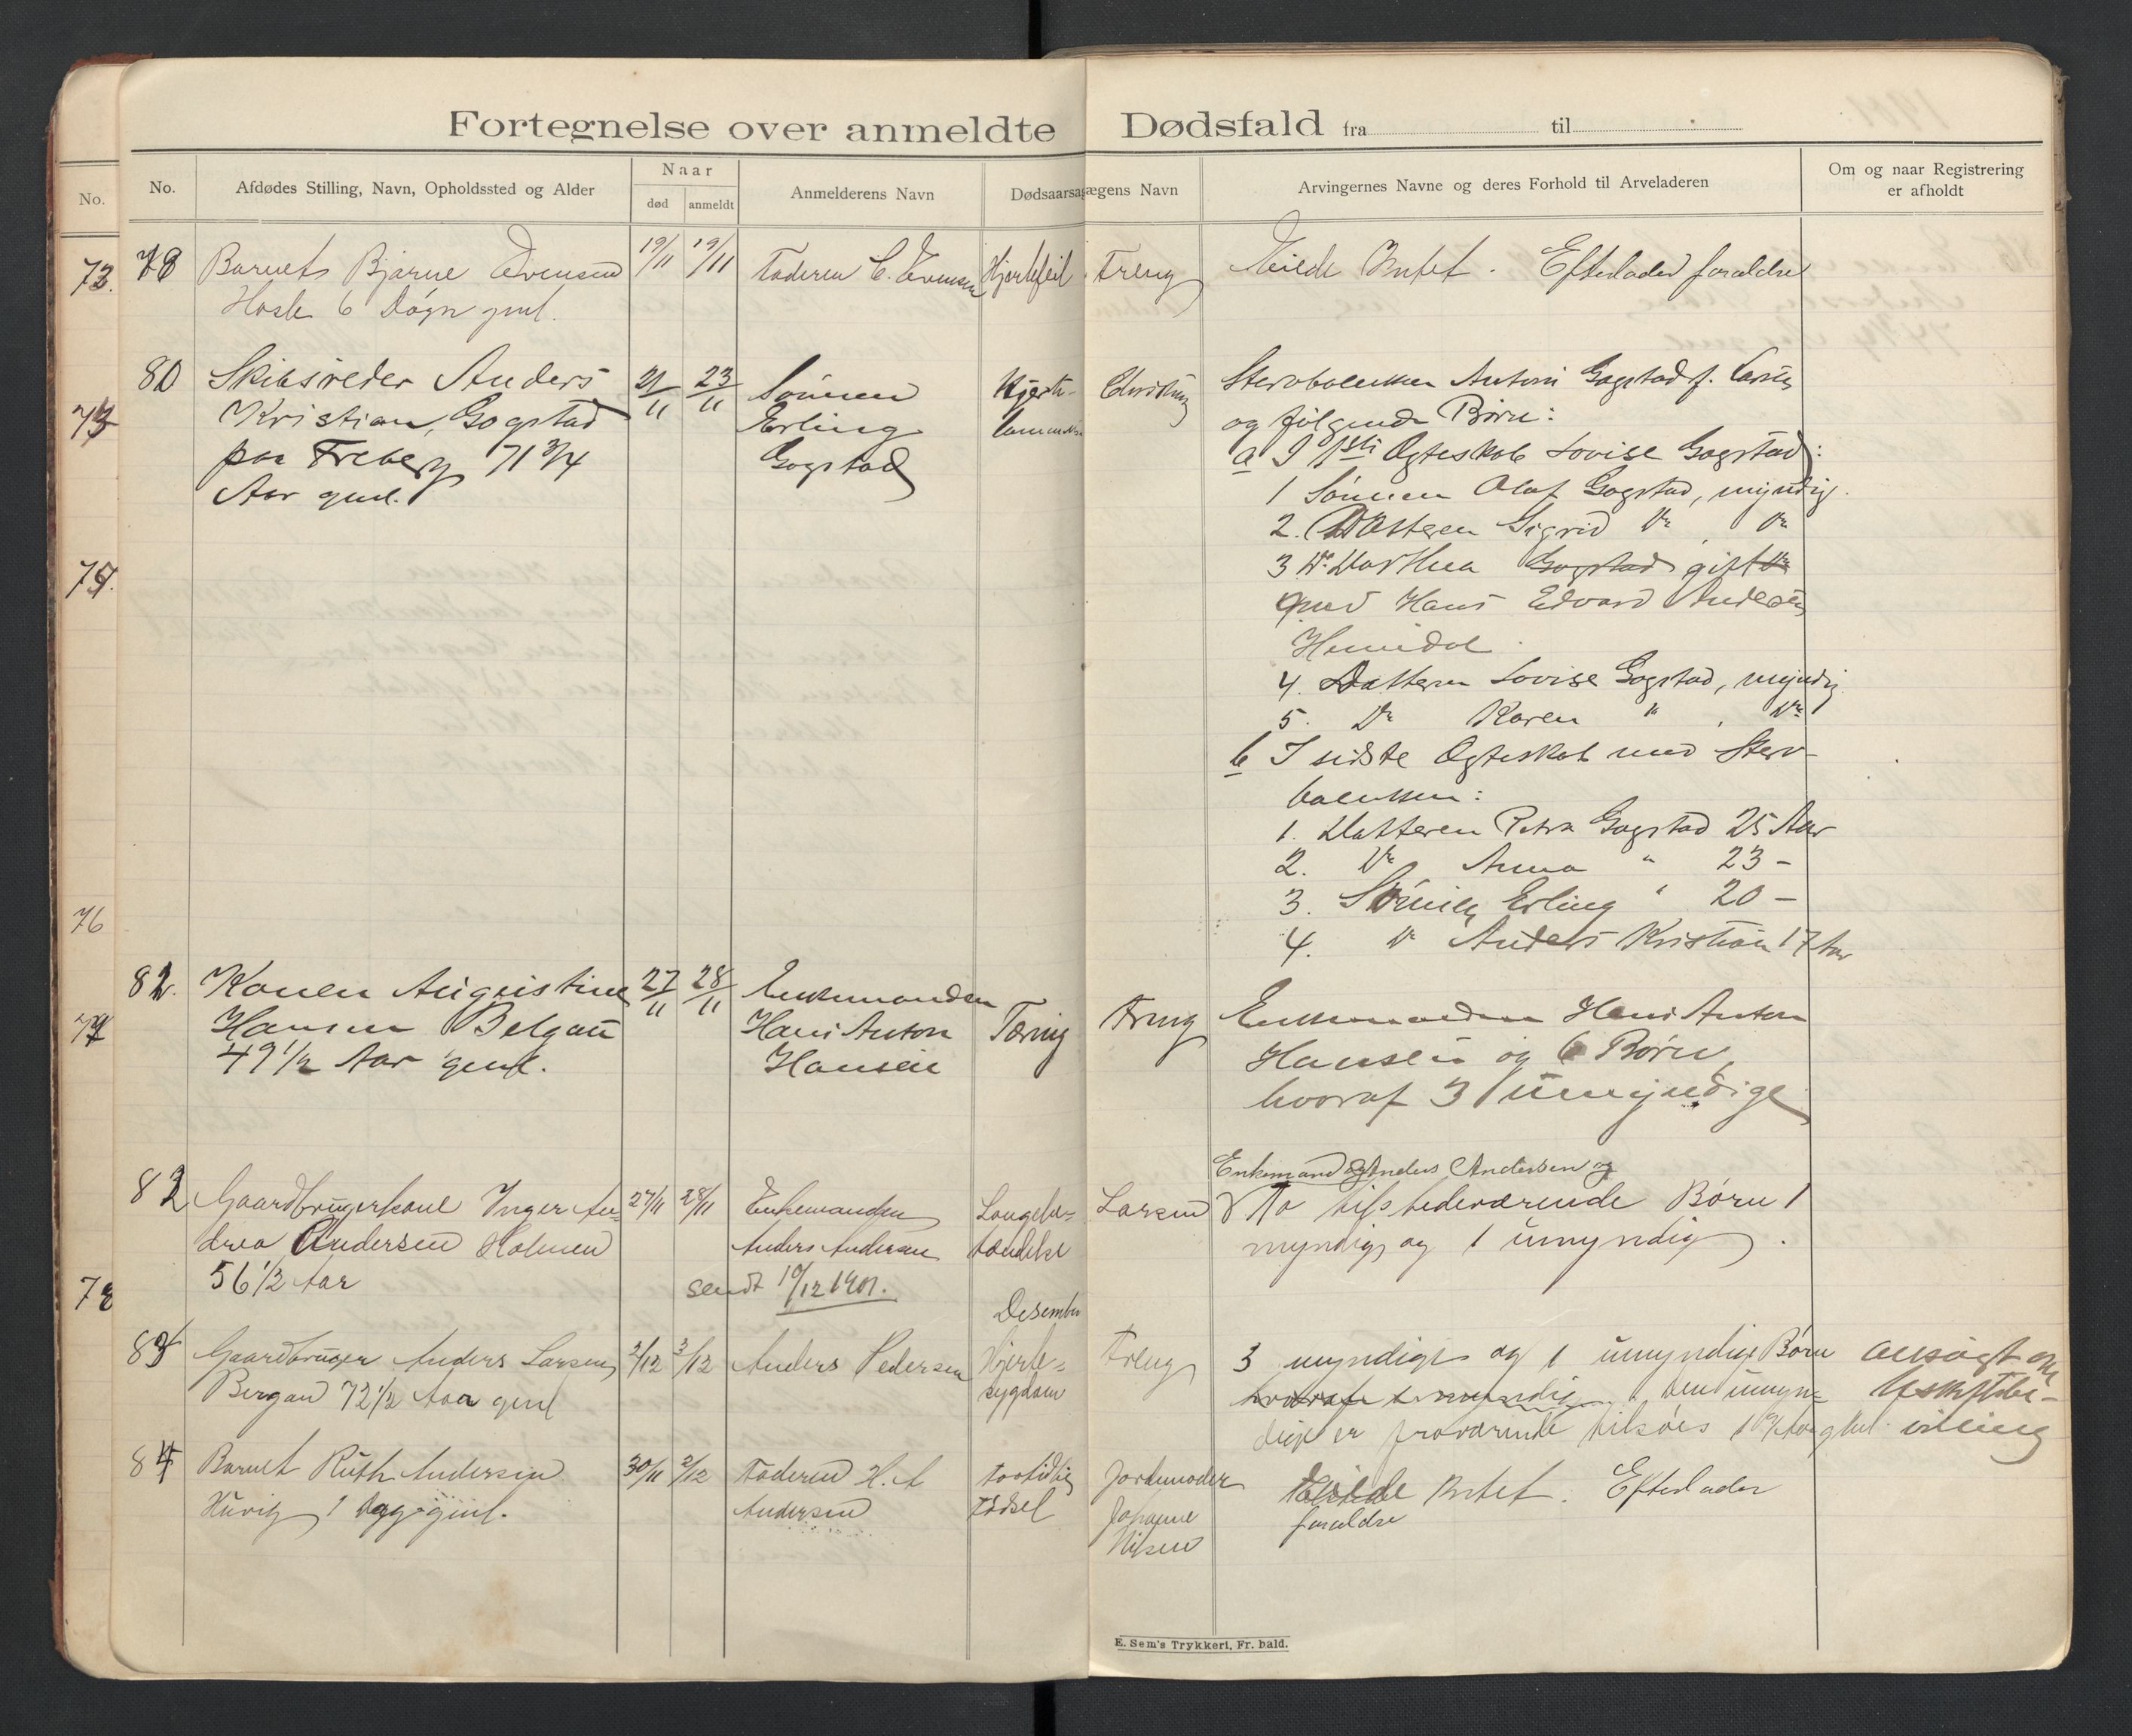 Fortegnelse over anmeldte Dødsfald fra til
No.
No. Afdødes Stilling, Navn, Opholdssted og Alder Naar død anmeldt Anmelderens Navn Dødsaarsa ægens Navn Arvingernes Navne og deres Forhold til Arveladeren Om og naar Registrering er afholdt
73.
75
76
78 Barnet Bjarne Evensen 19/11 19/11 Faderen C. Evensen Hjertefeil Freng Eiede Intet. Efterlader forældre
Hasle 6 Døgn gml.
80 Skibsreder Anders 21/11 23/11 Sönnen Hjerte- Stervboenken Antoni Gogstad f.
Kristian Gogstad Erling og følgende Børn:
paa Freberg 71 3/4 Gogstad a I 1ste Ægteskab Lovise Gogstad:
Aar gml. 1 Sönnen Olaf Gogstad, myndig.
2. Datteren Sigrid Do, Do
3 Do Dorthea Gogstad gift
med Hans Edvard Andersen
Hemidal
4. Datteren Lovise Gogstad, myndig.
5. Do Karen " , Do
b I sidste Ægteskab med Sterv-
boenken:
1. Datteren Petra Gogstad 25 Aar
2. Do Anna " 23 -
3. Sönnen Erling " 20 -
4. Do Anders Kristian 17 Aar
82. Konen Augustine 27/11 28/11 Enkemanden Tæring Freng Enkemanden Hans Anton
Hansen Belgau Hans Anton Hansen og 6 Børn,
49 1/2 Aar gml. Hansen hvoraf 3 umyndige
Enkemand Anders Andersen og
82 Gaardbrugerkone Inger An- 27/11 28/11 Enkemanden Lungebe- Larsen To tilstedeværende Børn 1
drea Andersen Holmen Anders Andersen tændelse myndig og 1 umyndig.
56 1/2 Aar sendt 10/12 1901.
Desember
83 Gaardbruger Anders Larsen 2/12 3/12 Anders Pedersen Hjerte- Freng 3 myndige og 1 umyndige Børn ansøgt om
Bergan 72 1/2 Aar gml sygdom hvoraf 1 myndig, den umyn- uskiftebe-
dige er fraværende tilsøes villing
84 Barnet Ruth Andersen 30/11 2/12 Faderen H. A Fortidlig Jordemoder Eiede Intet. Efterlader
1 Dag gml. Andersen Fødsel Johanne forældre
Nilsen
E. Sem's Trykkeri, Fr. hald.